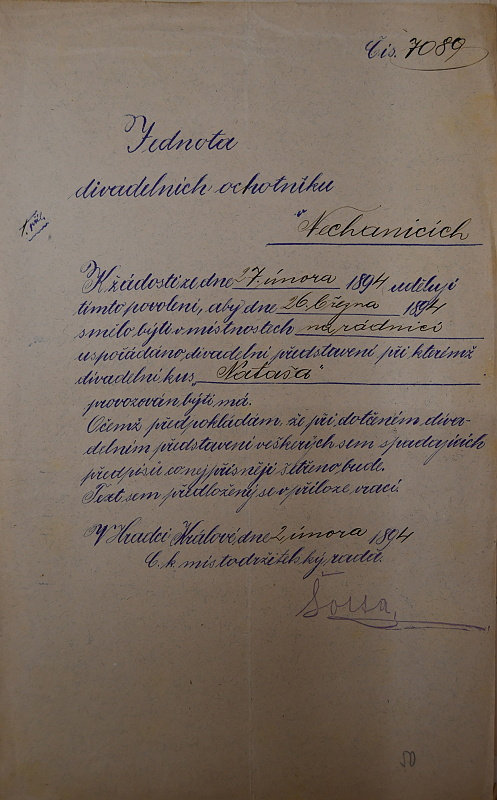 Čís. 7089
Jednota
divadelních ochotníku
1. příl.
v Nechanicích
K žádosti ze dne 27. února 1894 uděluji
tímto povolení, aby dne 26. března 1894
smělo býti v místnostech na radnici
uspořádáno divadelní představení při kterémž
divadelní kus „Nataša"
provozován býti má.
Očemž předpokládám, že při dotčeném diva-
delním představení veškerých sem spadajících
předpisů co nejpřísněji šetřeno bude.
Text sem předložený se v příloze vrací.
V Hradci Králové, dne 2. února 1894
C. k. místodržitelský rada.
50